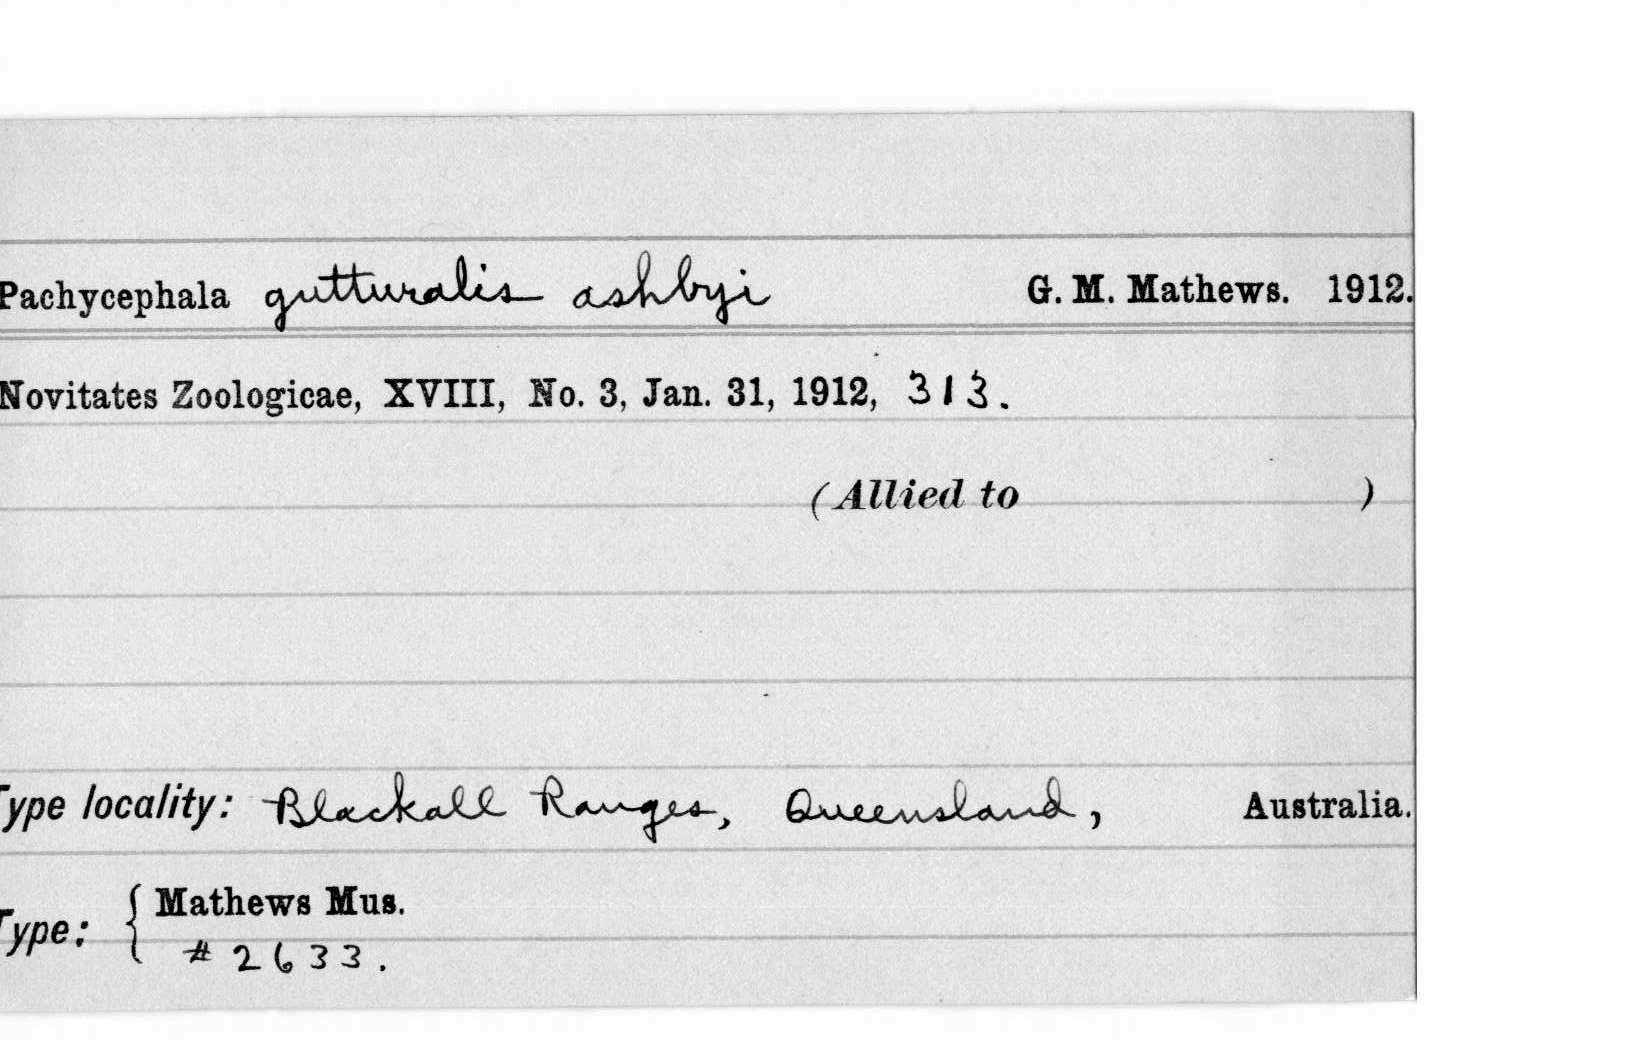 Pachycephala gutturalis ashbyi G. M. Mathews. 1912.
Novitates Zoologicae, XVIII, No. 3, Jan. 31, 1912, 313.
(Allied to )
Type locality: Blackall Ranges, Queensland, Australia.
Type: { Mathews Mus.
# 2633.